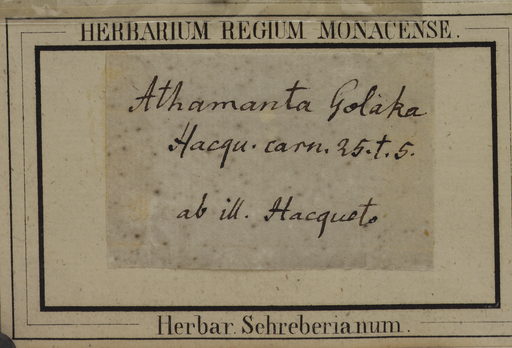 HERBARIUM REGIUM MONACENSE.
Athamanta Golaka
Hacqu. carn. 25. t. 5.
ab ill. Hacqueto
Herbar. Schreberianum.